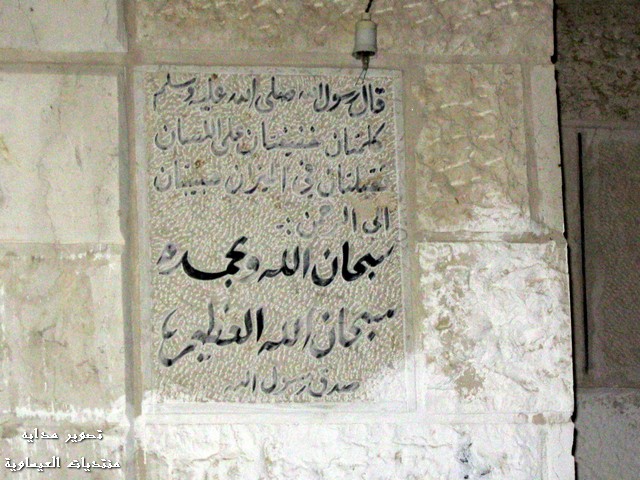 قال رسول الله صلى الله عليه وسلم
كلمتان خفيفتان على اللسان
ثقيلتان في الميزان حبيبتان
الى الرحمن :
سبحان الله وبحمده
سبحان الله العظيم
صدق رسول الله
تصوير هدايه
منتديات العيساوية